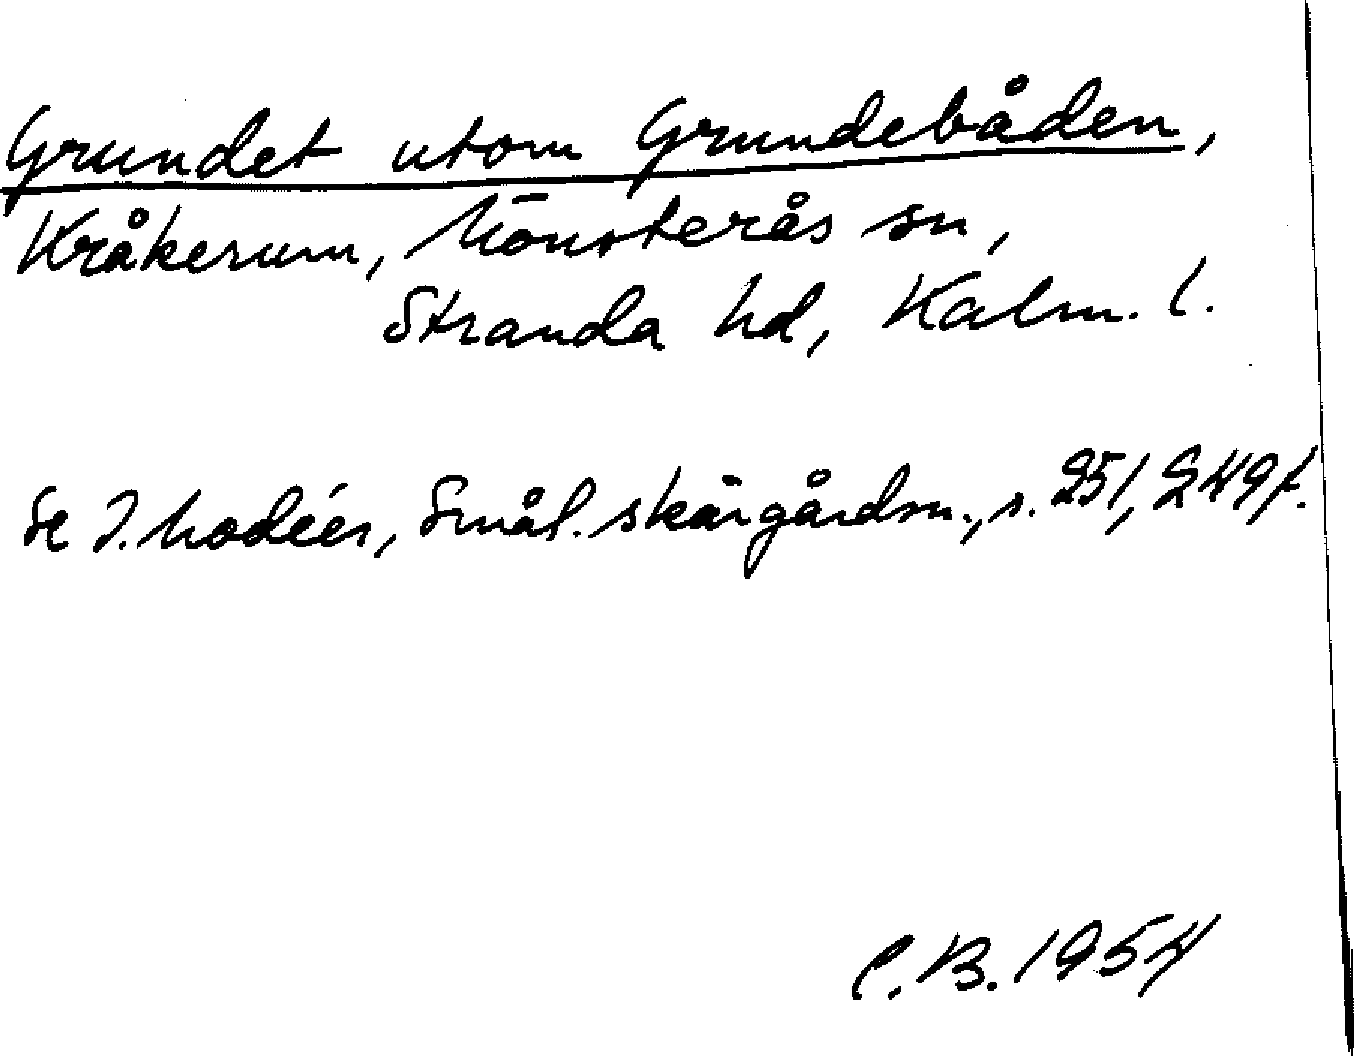 Grundet utom Grundebåden,
Kråkerum, Mönsterås sn,
Stranda hd, Kalm. l.
Se I. Modéer, Smål. skärgårdsn., s. 251, 249f.
C.B. 1954